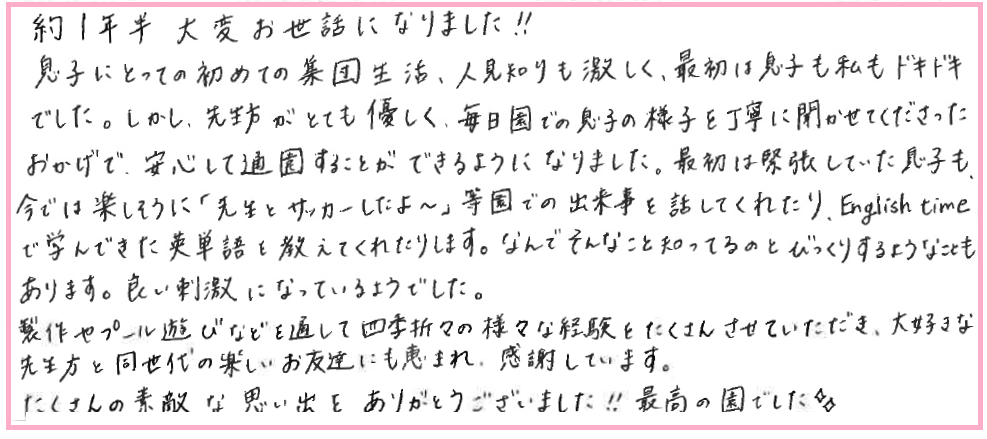 約1年半 大変お世話になりました!!
息子にとっての初めての集団生活、人見知りも激しく、最初は息子も私もドキドキ
でした。しかし、先生方がとても優しく、毎日園での息子の様子を丁寧に聞かせてくださった
おかげで、安心して通園することができるようになりました。最初は緊張していた息子も、
今では楽しそうに「先生とサッカーしたよ〜」等園での出来事を話してくれたり、English time
で学んできた英単語を教えてくれたりします。なんでそんなこと知ってるのとびっくりするようなことも
あります。良い刺激になっているようでした。
製作やプール遊びなどを通して四季折々の様々な経験をたくさんさせていただき、大好きな
先生方と同世代の楽しいお友達にも恵まれ、感謝しています。
たくさんの素敵な思い出をありがとうございました!! 最高の園でした✧✧